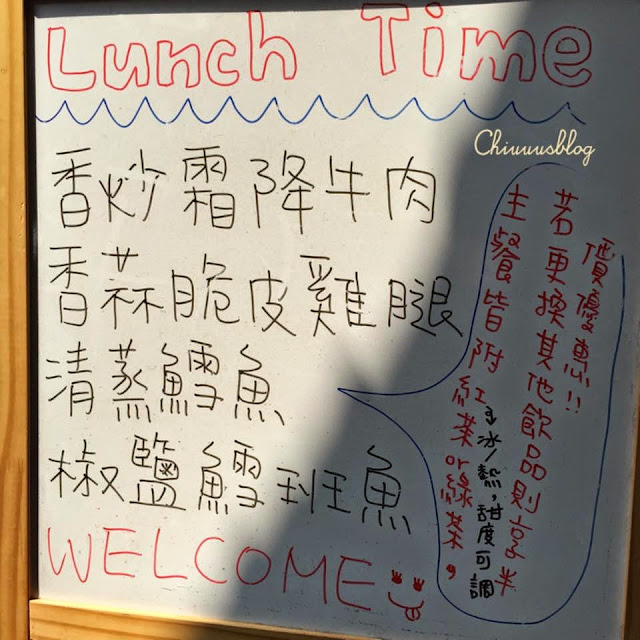 Lunch Time
Chiuuusblog
香炒霜降牛肉
香蒜脆皮雞腿
清蒸鱈魚
椒鹽鱈班魚
主餐皆附紅茶or綠茶,
冰/熱,甜度可調
若更換其他飲品則享半
價優惠!!
WELCOME